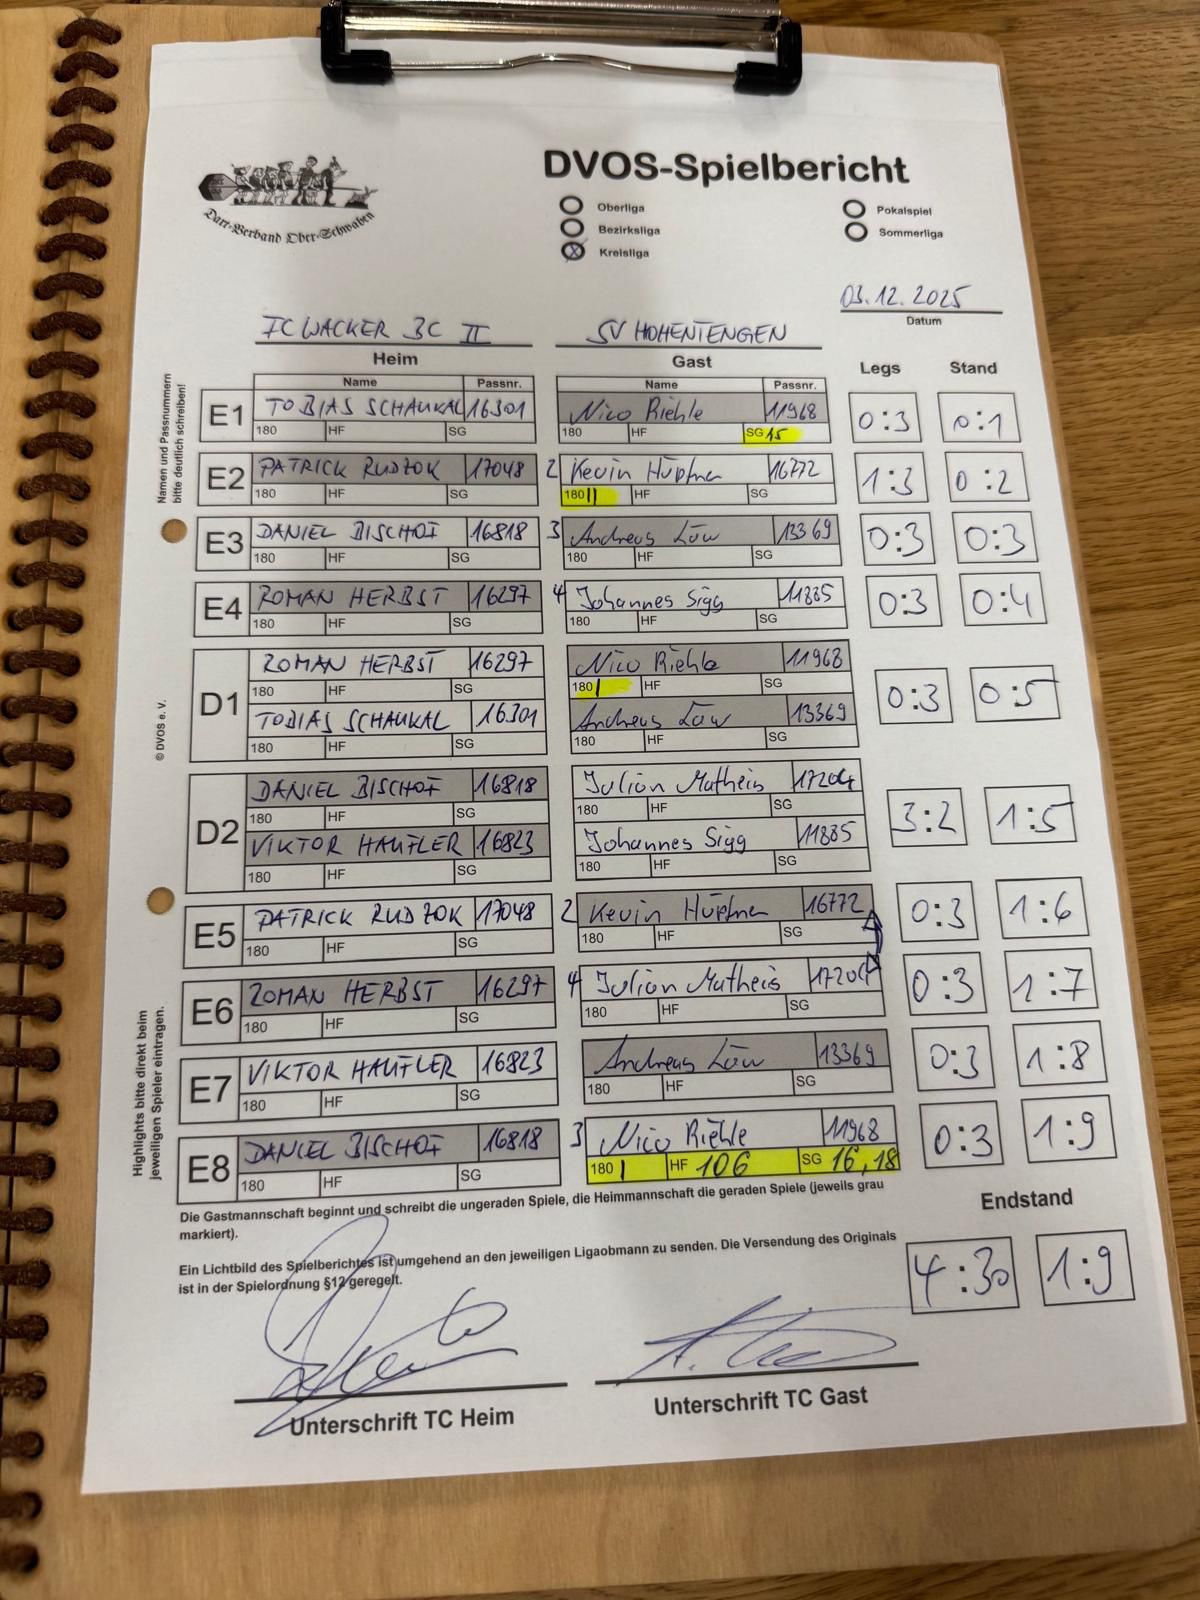 Dart-Verband Ober-Schwaben
DVOS-Spielbericht
Oberliga
Bezirksliga
Kreisliga
Pokalspiel
Sommerliga
03.12.2025
Datum
FC WACKER BC II
SV HOHENTENGEN
Heim
Gast
Legs
Stand
Namen und Passnummern
bitte deutlich schreiben!
Name Passnr. Name Passnr.
E1 TOBIAS SCHAUKAL 16301 Nico Riehle 11968 0:3 0:1
180 HF SG 180 HF SG 15
E2 PATRICK RUDZOK 17048 2 Kevin Hüpfner 16772 1:3 0:2
180 HF SG 180 || HF SG
E3 DANIEL BISCHOF 16818 3 Andreas Löw 13369 0:3 0:3
180 HF SG 180 HF SG
E4 ROMAN HERBST 16297 4 Johannes Sigg 11885 0:3 0:4
180 HF SG 180 HF SG
D1 ROMAN HERBST 16297 Nico Riehle 11968 0:3 0:5
180 HF SG 180 | HF SG
TOBIAS SCHAUKAL 16301 Andreas Löw 13369
180 HF SG 180 HF SG
© DVOS e. V.
D2 DANIEL BISCHOF 16818 Julian Matheis 17204 3:2 1:5
180 HF SG 180 HF SG
VIKTOR HAUFLER 16823 Johannes Sigg 11885
180 HF SG 180 HF SG
E5 PATRICK RUDZOK 17048 2 Kevin Hüpfner 16772 0:3 1:6
180 HF SG 180 HF SG
E6 ROMAN HERBST 16297 4 Julian Matheis 17204 0:3 1:7
180 HF SG 180 HF SG
E7 VIKTOR HAUFLER 16823 Andreas Löw 13369 0:3 1:8
180 HF SG 180 HF SG
E8 DANIEL BISCHOF 16818 3 Nico Riehle 11968 0:3 1:9
180 HF SG 180 | HF 106 SG 16,18
Highlights bitte direkt beim
jeweiligen Spieler eintragen.
Die Gastmannschaft beginnt und schreibt die ungeraden Spiele, die Heimmannschaft die geraden Spiele (jeweils grau
markiert).
Endstand
Ein Lichtbild des Spielberichtes ist umgehend an den jeweiligen Ligaobmann zu senden. Die Versendung des Originals
ist in der Spielordnung §12 geregelt.
4:30 1:9
Unterschrift TC Heim
Unterschrift TC Gast